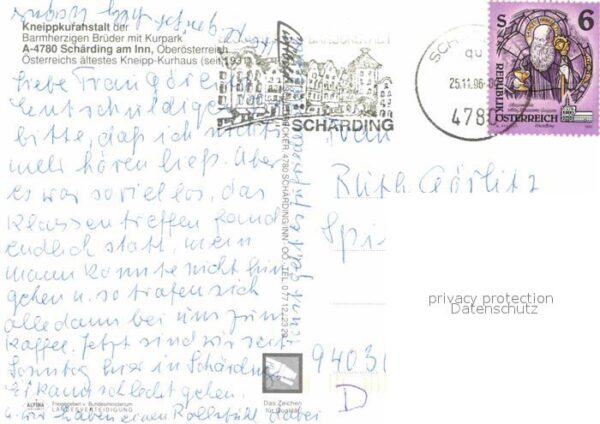 Kneippkuranstalt der
Barmherzigen Brüder mit Kurpark
A-4780 Schärding am Inn, Oberösterreich
Österreichs ältestes Kneipp-Kurhaus (seit 1931)
Liebe Frau Görlitz
entschuldigen
bitte, daß ich nichts
mehr hören ließ. Aber
es war so viel los, das
Klassentreffen fand
endlich statt, mein
Mann konnte nicht hin
gehen u. so trafen sich
alle dann bei uns zum
Kaffee. Jetzt sind wir seit
Sonntag hier in Schärding
Er kann schlecht gehen.
u. wir haben einen Rollstuhl dabei
ALPINA
Freigegeben v. Bundesministerium
LANDESVERTEIDIGUNG
4780 SCHÄRDING/INN - OÖ. TEL. 0 77 12
Das Zeichen
für Qualität
BAROCKSTADT
SCHÄRDING
25.11.96
4780
S 6
REPUBLIK
ÖSTERREICH
Frau
Ruth Görlitz
94031
D
privacy protection
Datenschutz